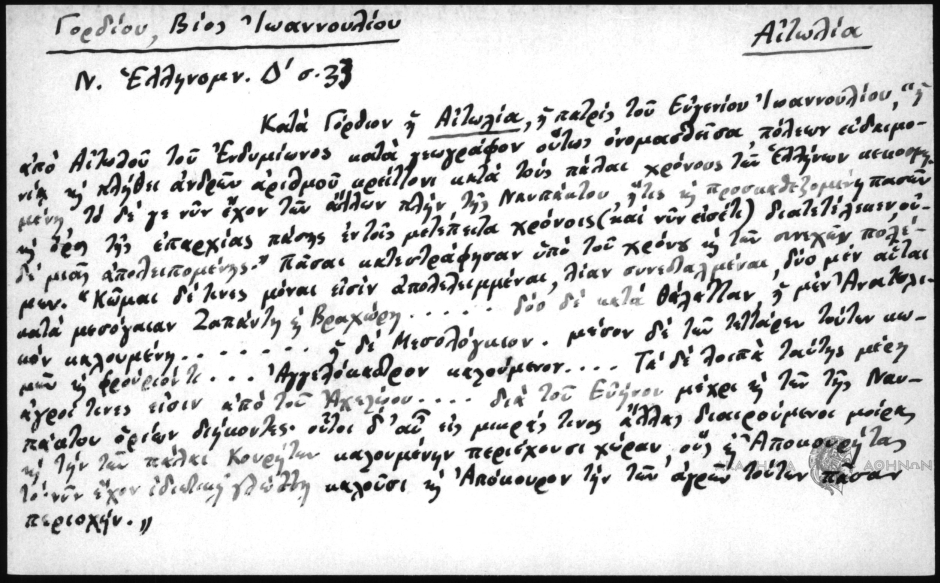 Γορδίου, Βίος Ἰωαννουλίου
Αἰτωλία
Ν. Ἑλληνομν. Δ' σ. 33
Κατὰ Γόρδιον ἡ Αἰτωλία, ἡ πατρὶς τοῦ Εὐγενίου Ἰωαννουλίου, "ἡ
ἀπὸ Αἰτωλοῦ τοῦ Ἐνδυμίωνος κατὰ γεωγράφον οὕτως ὀνομασθεῖσα πόλεων εὐδαιμο-
νίᾳ κὴ πλήθει ἀνδρῶν ἀριθμοῦ κρείττονι κατὰ τοὺς πάλαι χρόνους τῶν Ἑλλήνων κεκοσμη-
μένη τὸ δέ γε νῦν ἔχον τῶν ἄλλων πλὴν τῆς Ναυπάκτου, ἥτις κὴ προσκαθεζομένη πασῶν
κὴ ὅρος τῆς ἐπαρχίας πάσης ἐν τοῖς μετέπειτα χρόνοις (καὶ νῦν εἰσέτι) διατετέλεκεν οὐ-
δὲ μιᾶς ἀπολειπομένης." Πᾶσαι κατεστράφησαν ὑπὸ τοῦ χρόνου κὴ τῶν συνεχῶν πολέ-
μων. "Κῶμαι δέ τινες μόναι εἰσὶν ἀπολελειμμέναι, λίαν συνεσταλμέναι, δύο μὲν αὗται
κατὰ μεσόγαιαν Ζαπάντη ἡ Βραχώρη...... δύο δὲ κατὰ θάλατταν, ἡ μὲν Ἀνατολι-
κὸν καλουμένη........ ἡ δὲ Μεσολόγγιον. μέσον δὲ τῶν τεττάρων τούτων κω-
μῶν κὴ φρούριόν τι... Ἀγγελόκαστρον καλούμενον.... Τὰ δὲ λοιπὰ ταύτης μέρη
ἀγροί τινες εἰσιν ἀπὸ τοῦ Ἀχελῴου.... διὰ τοῦ Εὐήνου μέχρι κὴ τῶν τῆς Ναυ-
πάκτου ὁρίων διήκοντες· οὗτοι δ' αὖ εἰς μικράς τινας ἄλλας διαιρούμενοι μοίρας
κὴ τὴν τῶν πάλαι Κουρήτων καλουμένην περιέχουσι χώραν, οὓς κὴ Ἀποκουρήτας
τὸ νῦν ἔχον ἰδιωτικῇ γλώττῃ καλοῦσι κὴ Ἀπόκουρον τὴν τῶν ἀγρῶν τούτων πᾶσαν
περιοχήν."
ΑΚΑΔΗΜΙΑ ΑΘΗΝΩΝ